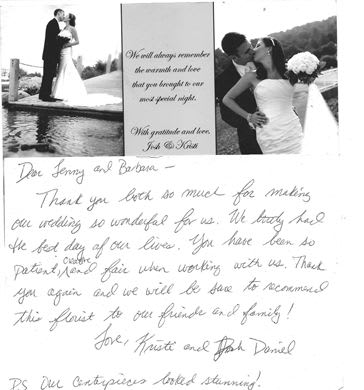 We will always remember
the warmth and love
that you brought to our
most special night.
With gratitude and love,
Josh & Kristi
Dear Lenny and Barbara –
Thank you both so much for making
our wedding so wonderful for us. We truly had
the best day of our lives. You have been so
patient, creative and fair when working with us. Thank
you again and we will be sure to recommend
this florist to our friends and family!
Love, Kristi and Josh Daniel
PS Our centerpieces looked stunning!